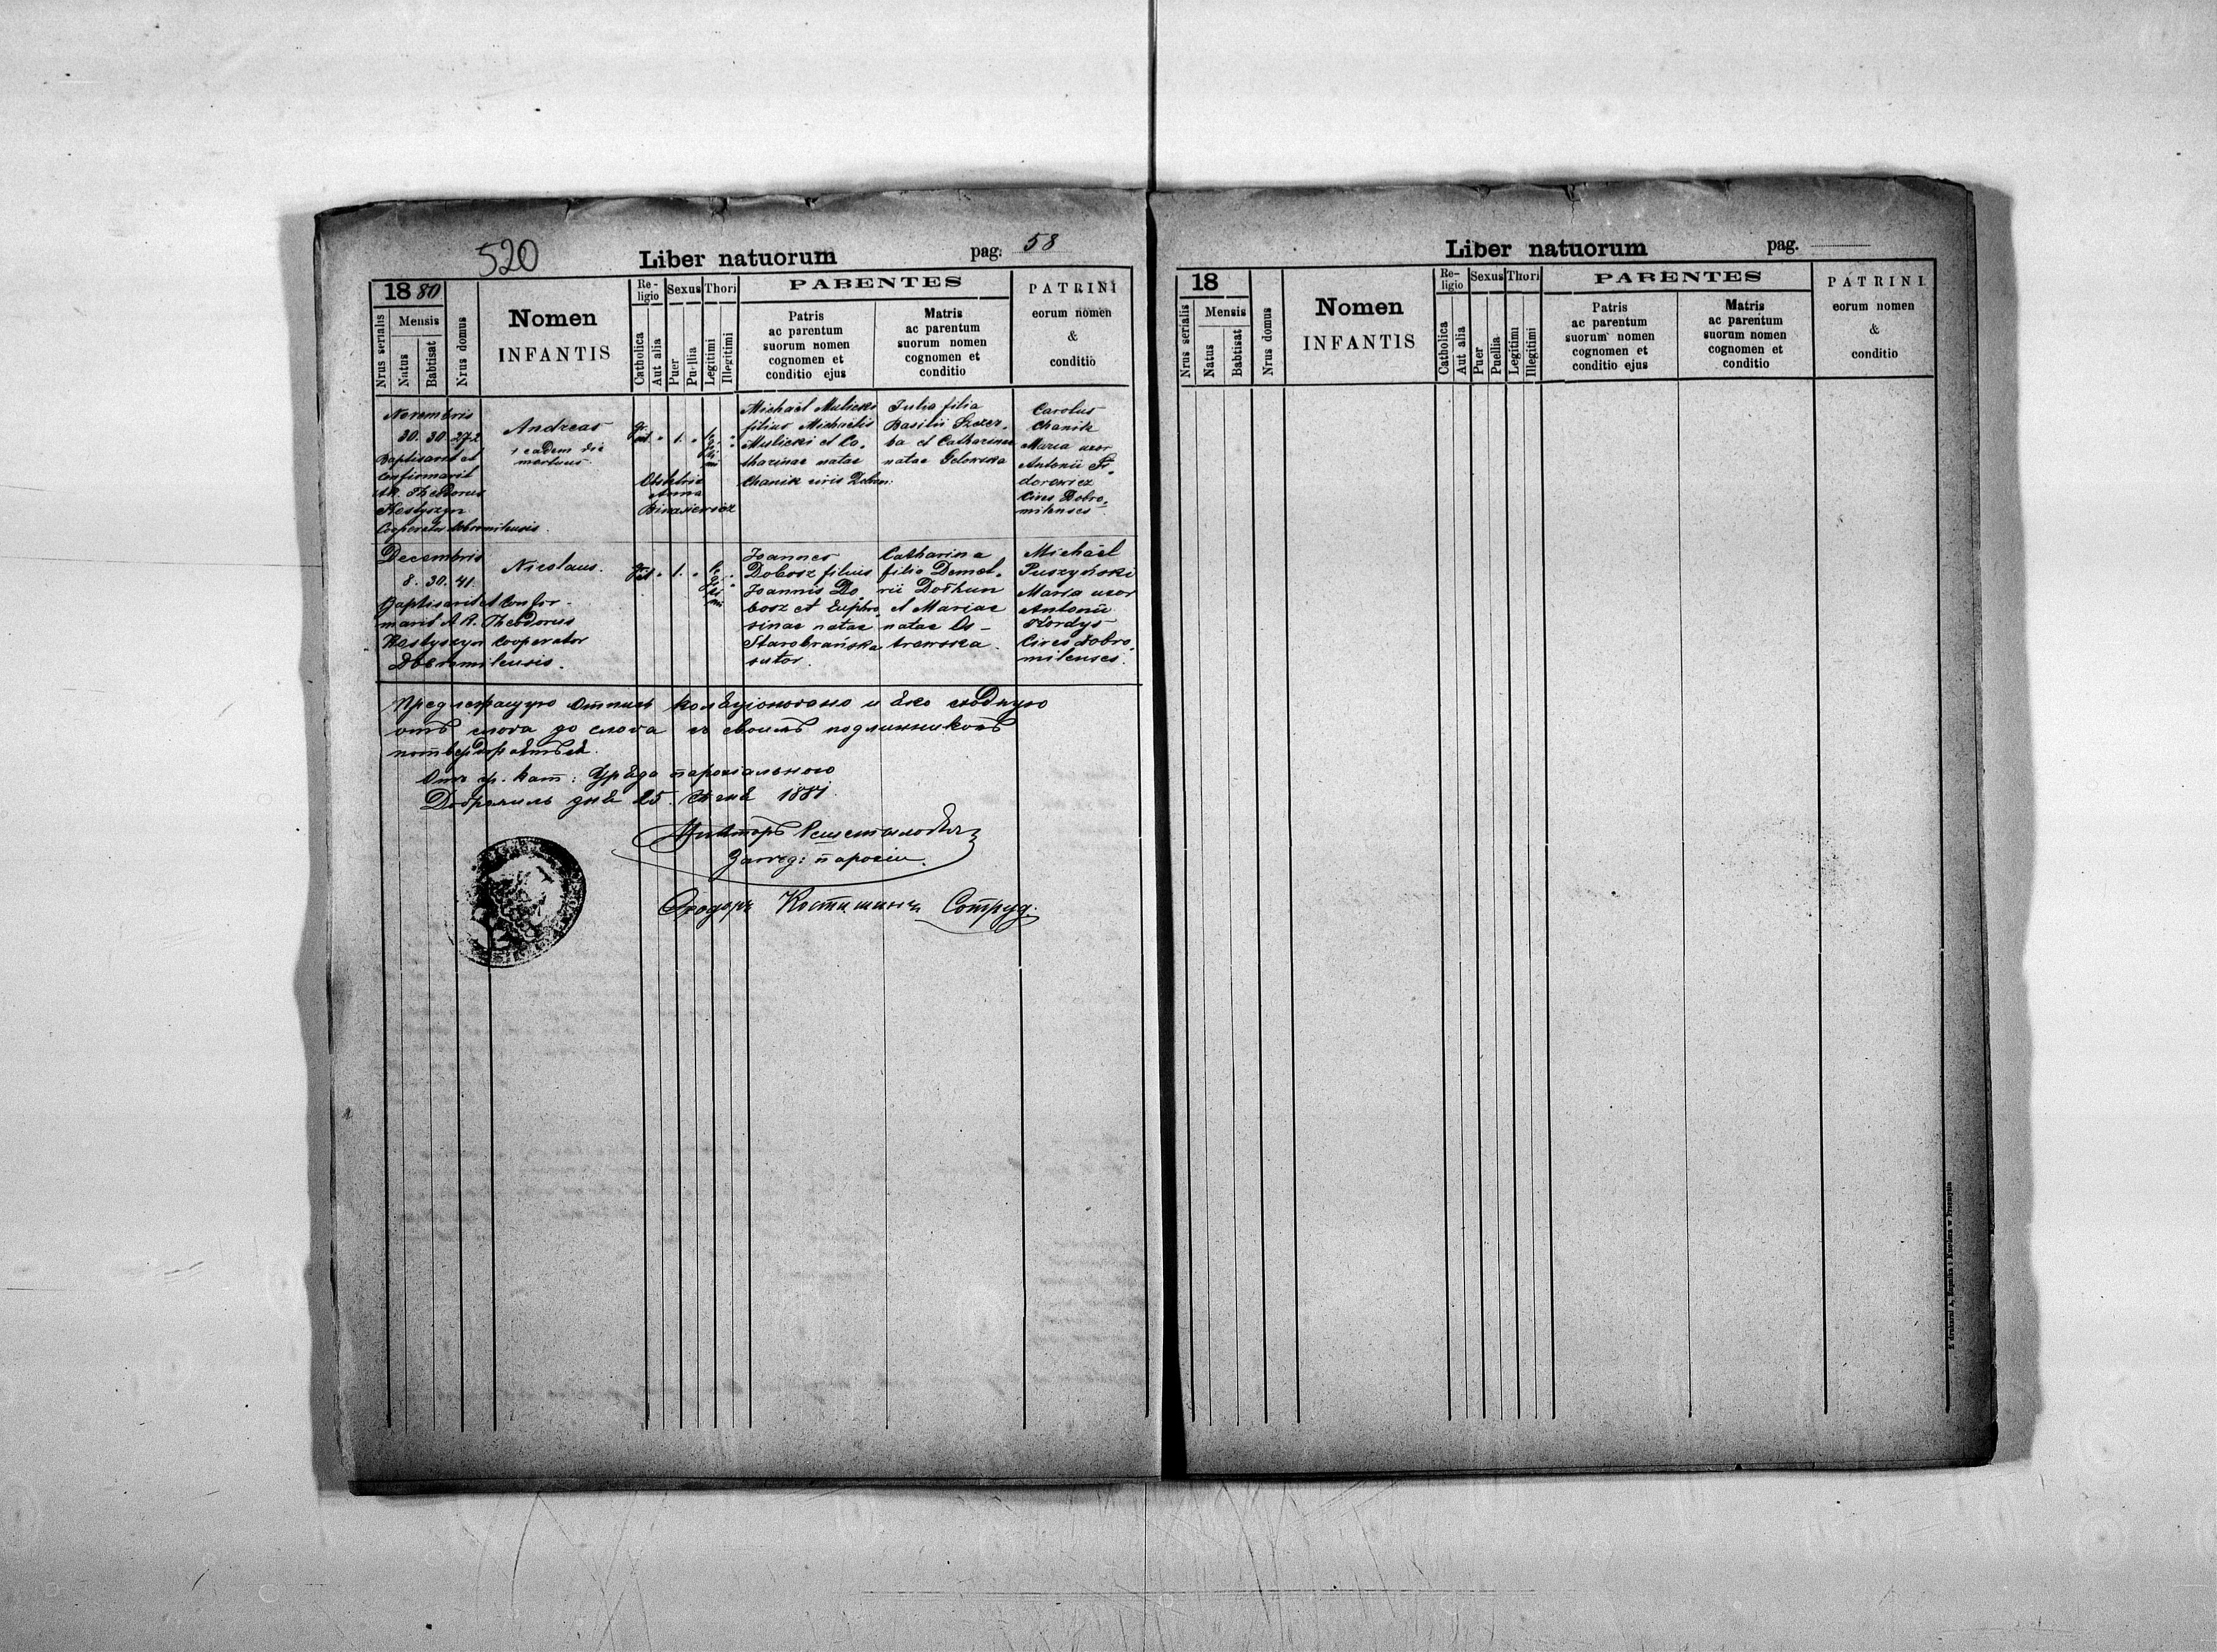 520
Liber natuorum pag. 58
1880
Nrus serialis
Mensis
Natus
Babtisat
Nrus domus
Nomen
INFANTIS
Re-
ligio
Catholica
Aut alia
Sexus
Puer
Puellia
Thori
Legitimi
Illegitimi
PARENTES
Patris
ac parentum
suorum nomen
cognomen et
conditio ejus
Matris
ac parentum
suorum nomen
cognomen et
conditio
PATRINI
eorum nomen
&
conditio
Novembris
30. 30. 272
Baptisavit et
Confirmavit
AR. Theodorus
Kostyszyn
Cooperator Dobromilensis.
Andreas
+ eadem die
mortuus.
gr.
cat. " 1. "
Obstetrix
Anna
Michaël Mulicki
filius Michaëlis
Mulicki et Ca-
tharinae natae
Chanik civis Dobrom:
Julia filia
Basilii Szczer-
ba et Catharinae
natae
Carolus
Chanik
Maria uxor
Antonii Fe-
dorowicz
Cives Dobro-
milenses
Decembris
8. 30. 41.
Baptisavit et Confir-
mavit A.R. Theodorus
Kostyszyn cooperator
Dobromilensis.
Nicolaus.
gr.
cat. " 1. "
Joannes
Dobosz filius
Joannis Do-
bosz et Euphro-
sinae natae
Starobrańska
sutor.
Catharina
filia Demet-
rii Dołhun
et Mariae
natae Os-
trowska.
Michaël
Puszyński
Maria uxor
Antonii
Kordys
Cives Dobro-
milenses.
Предлежащую отпись колляціоновано и яко сходную
отъ слова до слова съ своимъ подлинникомъ
потверджаеться.
Отъ гр. кат: Уряда парохіального
Добромиль дня 25. 1881.
завед: парохіи.
Ѳеодоръ Костишинъ Сотруд:
Liber natuorum pag.
18
Nrus serialis
Mensis
Natus
Babtisat
Nrus domus
Nomen
INFANTIS
Re-
ligio
Catholica
Aut alia
Sexus
Puer
Puellia
Thori
Legitimi
Illegitimi
PARENTES
Patris
ac parentum
suorum nomen
cognomen et
conditio ejus
Matris
ac parentum
suorum nomen
cognomen et
conditio
PATRINI
eorum nomen
&
conditio